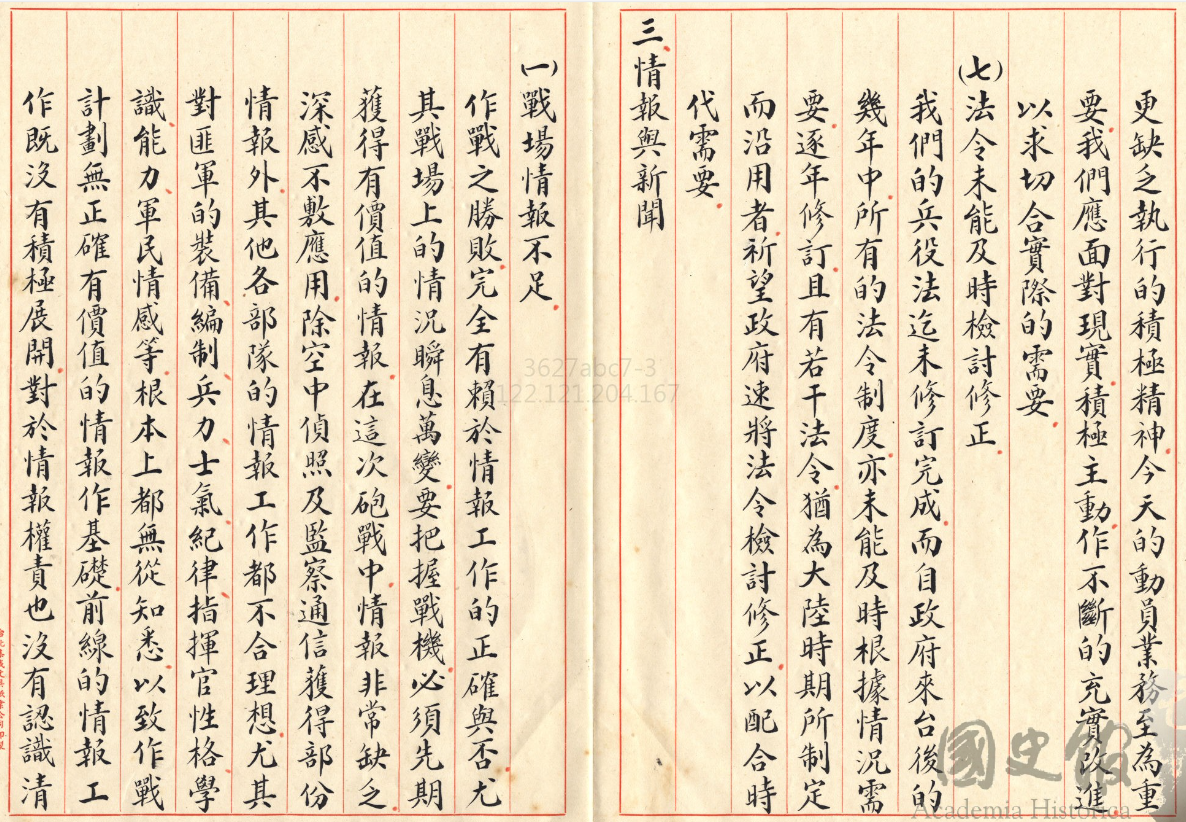 更缺乏執行的積極精神今天的動員業務至為重
要我們應面對現實積極主動作不斷的充實改進
以求切合實際的需要
(七)法令未能及時檢討修正
我們的兵役法迄未修訂完成而自政府來台後的
幾年中所有的法令制度亦未能及時根據情況需
要逐年修訂且有若干法令猶為大陸時期所制定
而沿用者祈望政府速將法令檢討修正以配合時
代需要
三情報與新聞
(一)戰場情報不足
作戰之勝敗完全有賴於情報工作的正確與否尤
其戰場上的情況瞬息萬變要把握戰機必須先期
獲得有價值的情報在這次砲戰中情報非常缺乏
深感不敷應用除空中偵照及監察通信獲得部份
情報外其他各部隊的情報工作都不合理想尤其
對匪軍的裝備編制兵力士氣紀律指揮官性格學
識能力軍民情感等根本上都無從知悉以致作戰
計劃無正確有價值的情報作基礎前線的情報工
作既沒有積極展開對於情報權責也沒有認識清
3627abc7-3
122.121.204.167
國史館
Academia Historica